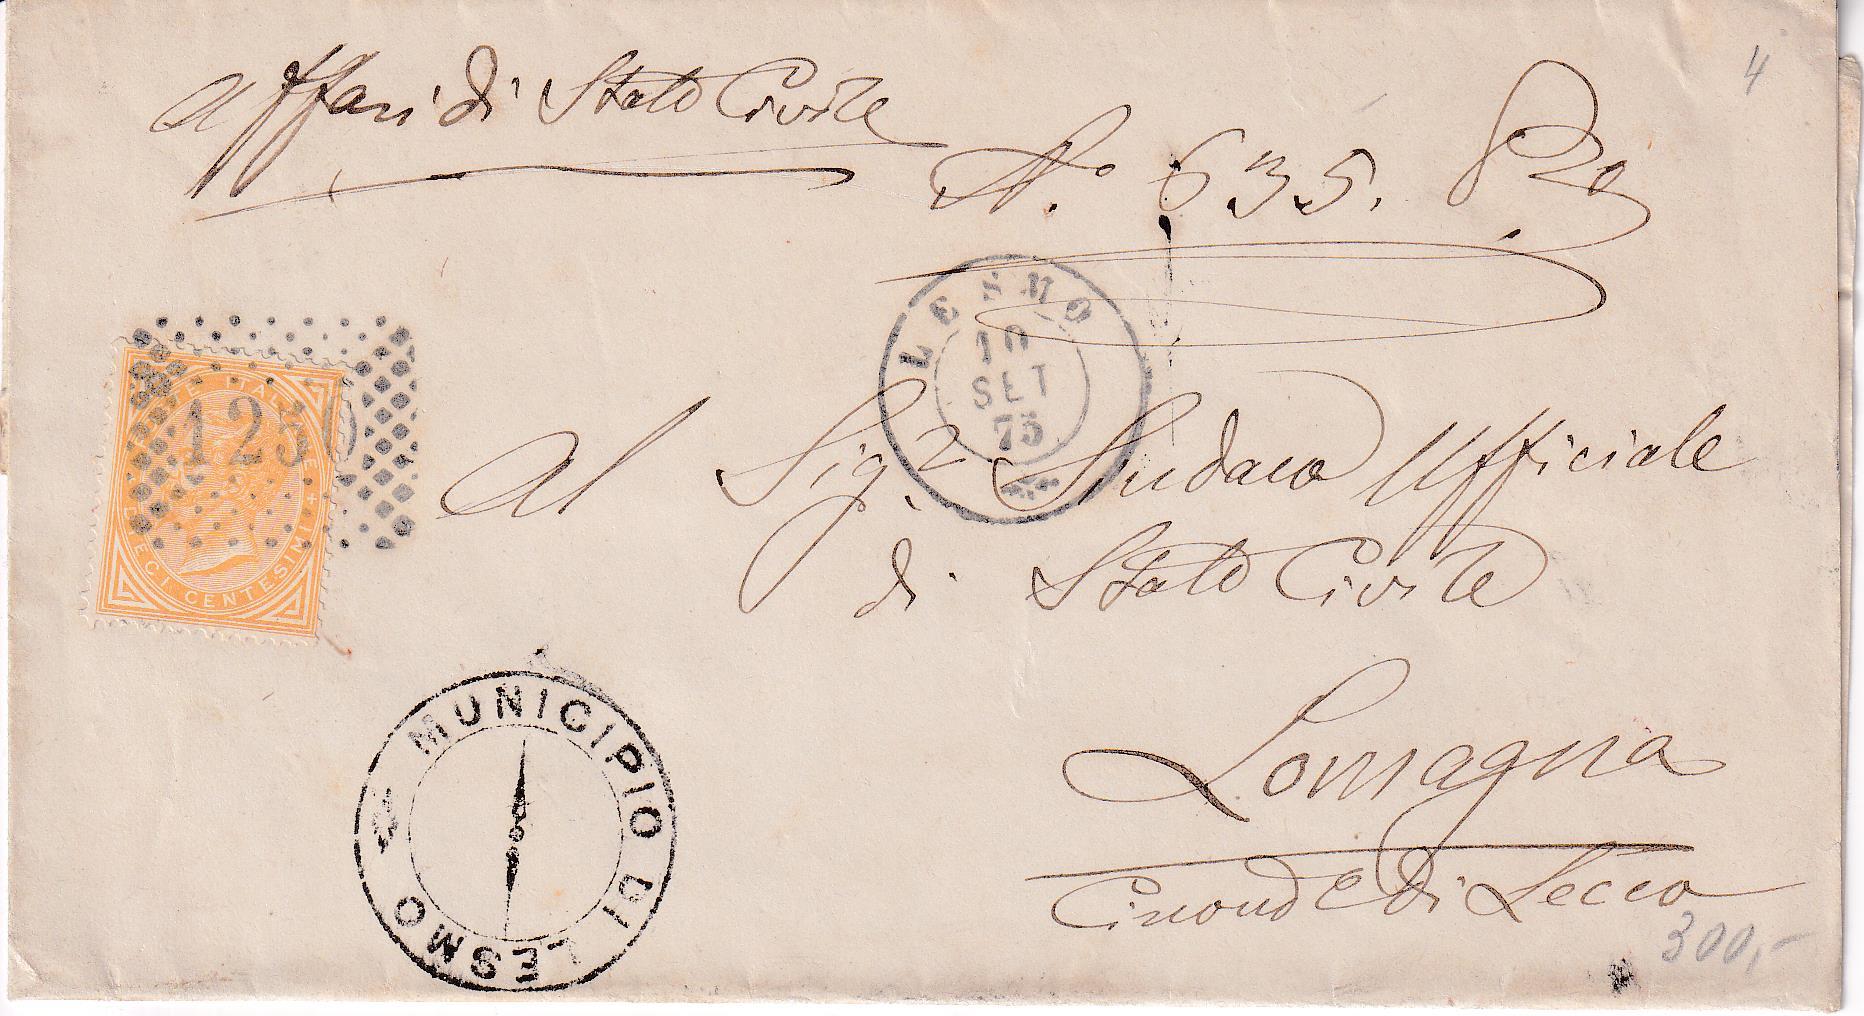 Affari di Stato Civile
4
N.º 635. P.
LESMO
10
SET
75
POSTE ITALIANE
DIECI CENTESIMI
1230
Al Sig.r Sindaco Ufficiale
di Stato Civile
MUNICIPIO DI LESMO
Lomagna
Circond.e di Lecco
300,-